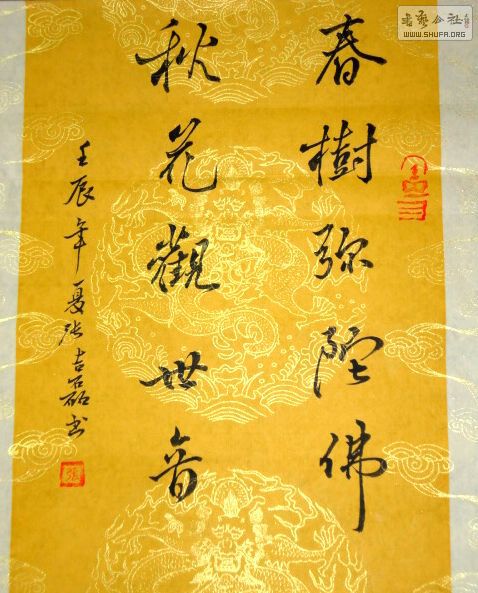 春樹弥陀佛
秋花觀世音
壬辰年夏张吉磊书
書藝公社
WWW.SHUFA.ORG